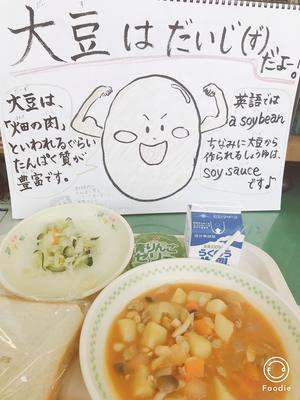 大豆はだいじ(ず)だよ!
大豆は、
「畑の肉」
といわれるぐらい
たんぱく質が
豊富です。
英語では
a soybean
ちなみに大豆から
作られるしょうゆは、
soy sauce
です♪
青りんご
ゼリー
らくのう
Foodie